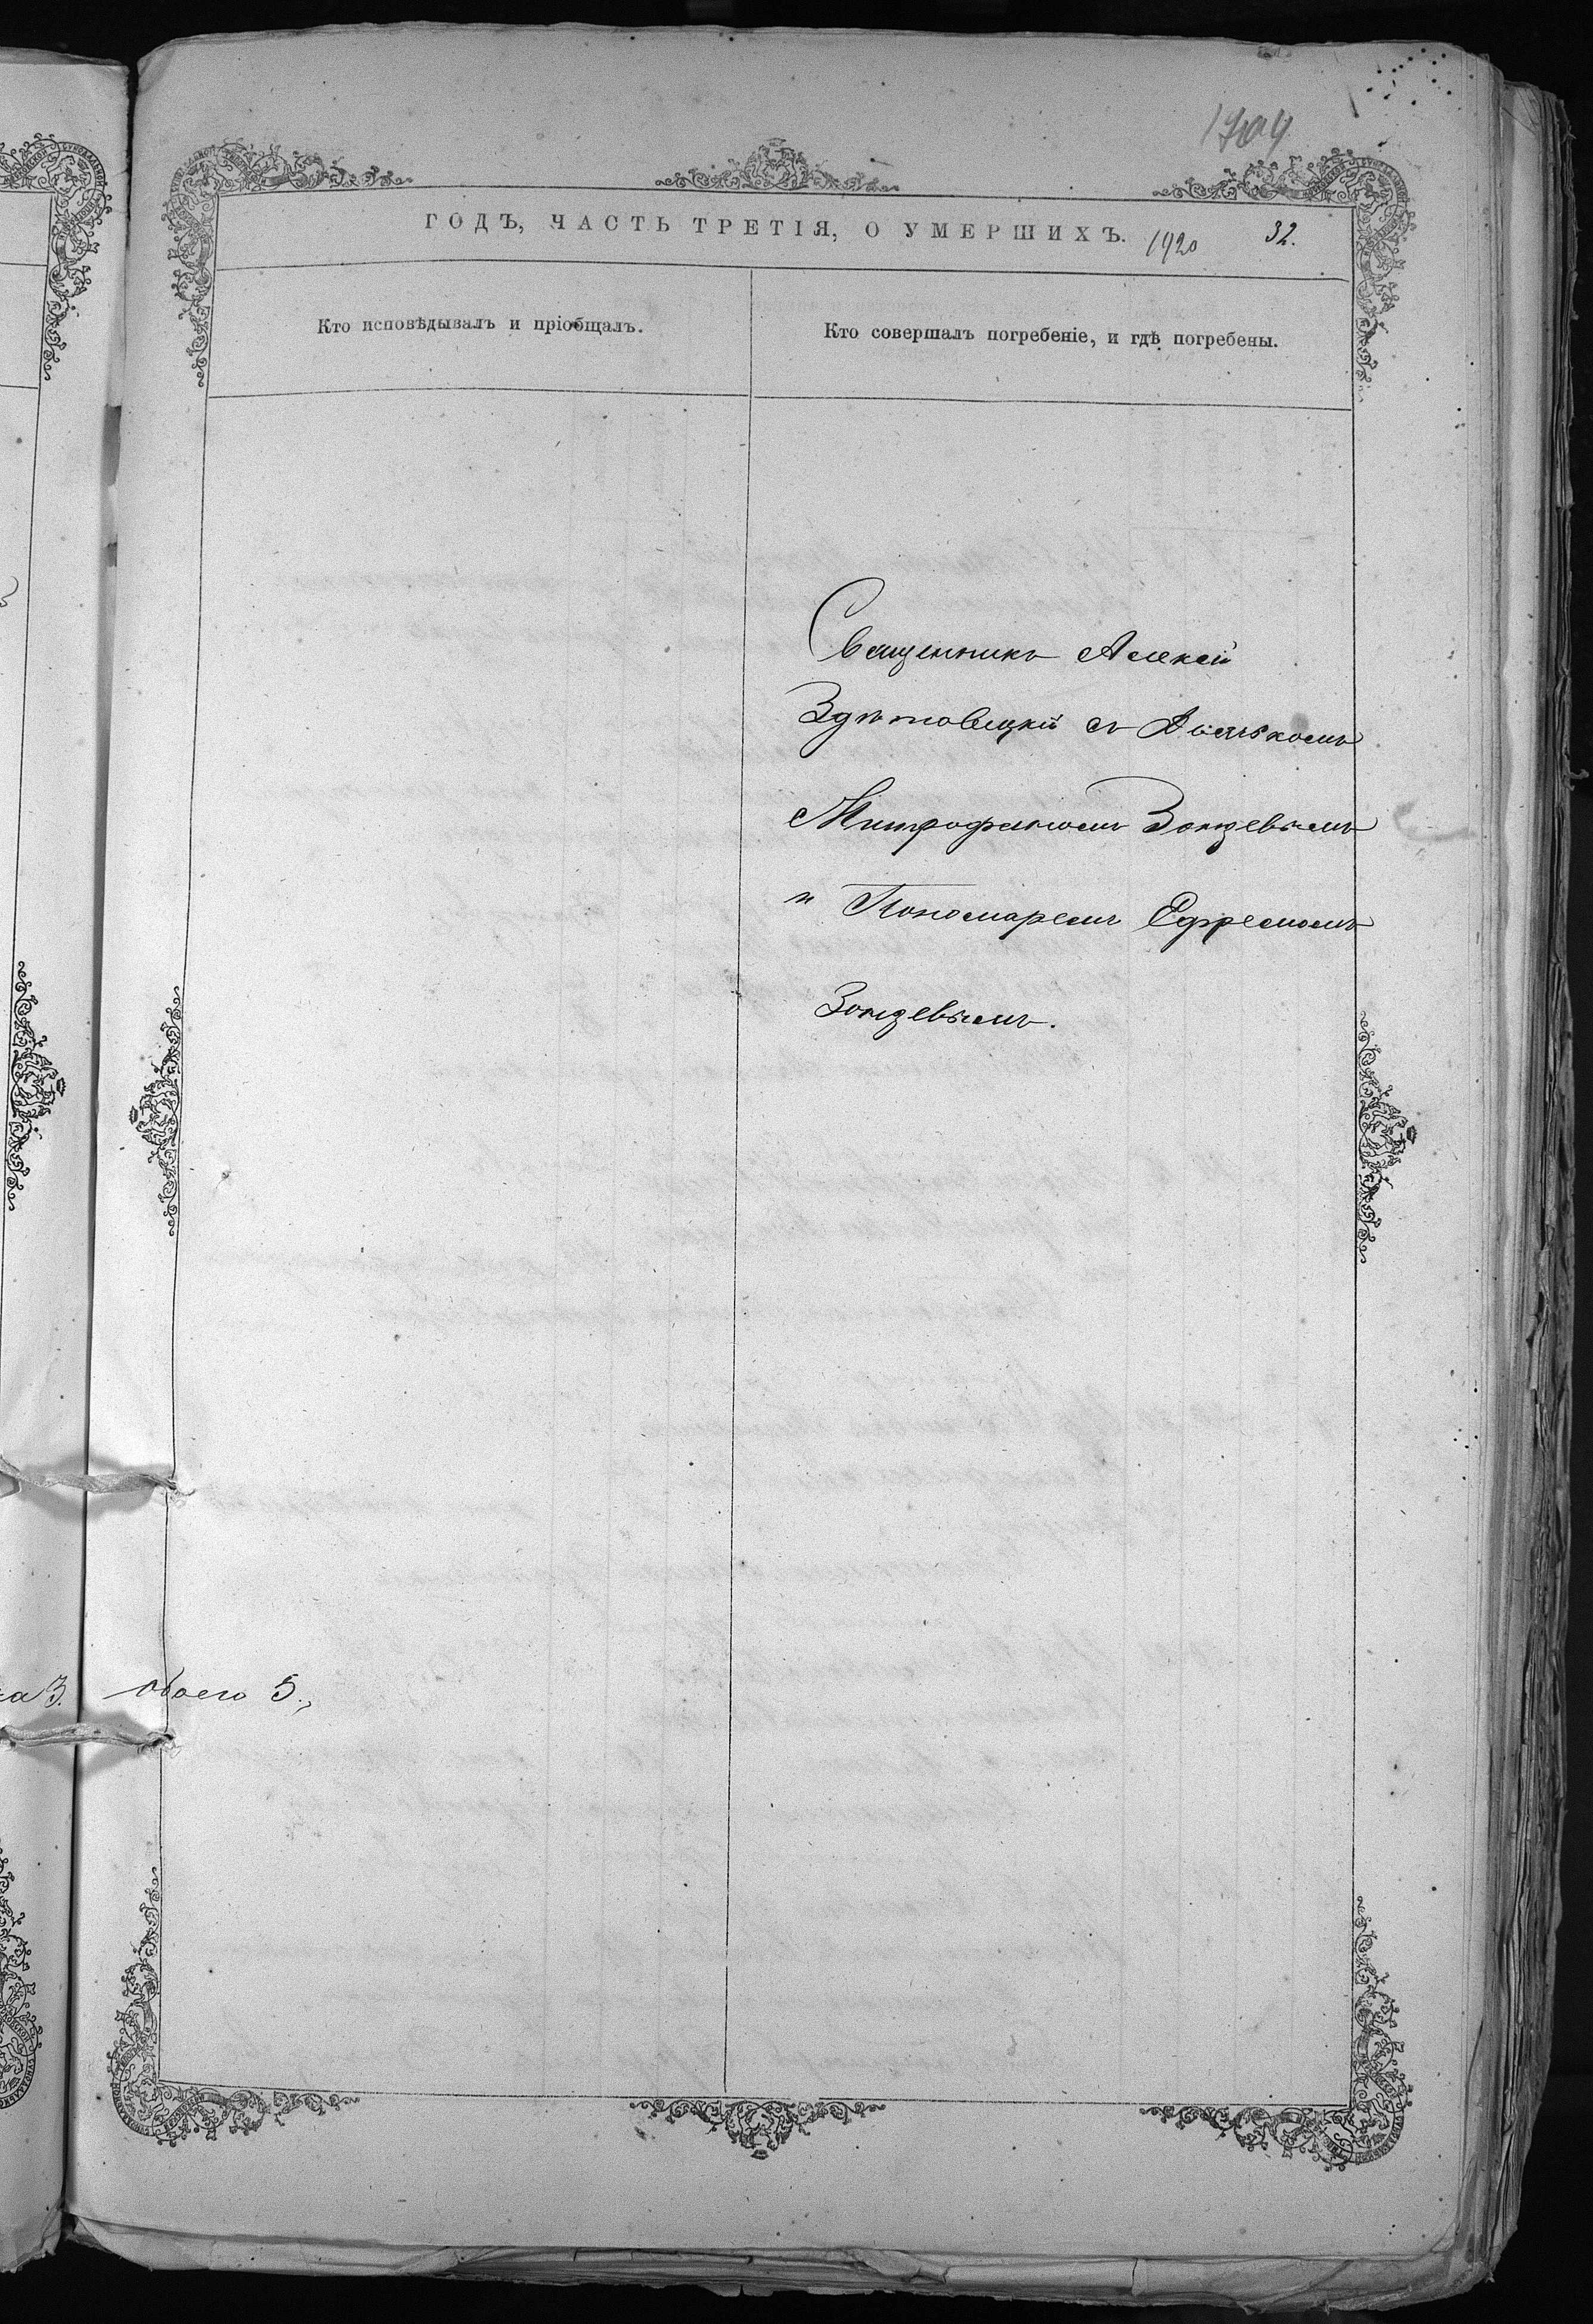 ГОДЪ, ЧАСТЬ ТРЕТІЯ, О УМЕРШИХЪ. 1920 32.
Кто исповѣдывалъ и пріобщалъ.
Кто совершалъ погребеніе, и гдѣ погребены.
Священникъ Алексѣй
съ Дьячкомъ
Митрофаномъ Зонцевымъ
и Пономаремъ Ефремомъ
Зонцевымъ.
обоего 5.,